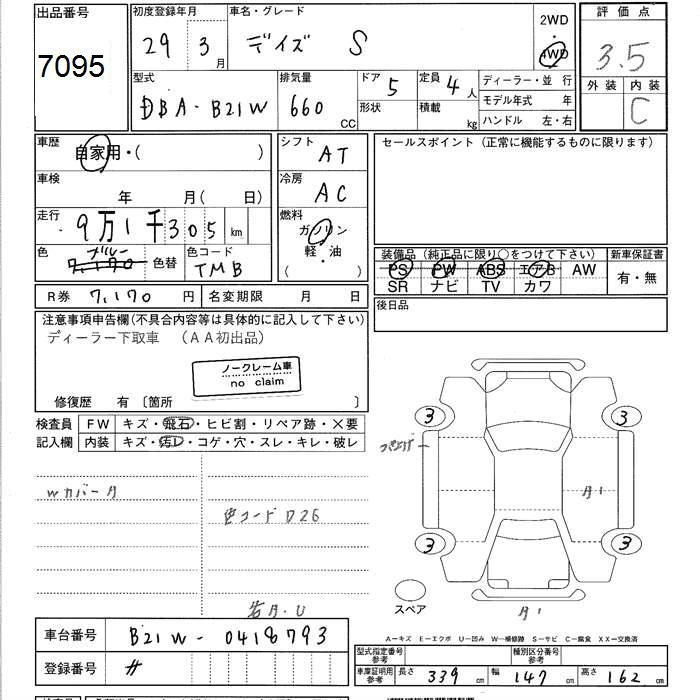 出品番号
7095
初度登録年月
29 3 月
車名・グレード
デイズ S
2WD
・
4WD
評価点
3.5
外装 内装
C
型式
DBA-B21W
排気量
660 CC
ドア 5
形状
定員 4 人
積載 kg
ディーラー・並 行
モデル年式 年
ハンドル 左・右
車歴
自家用・( )
車検
年 月( 日)
走行
9万1千305 km
色
ブルー
7,170
色替
色コード
TMB
シフト
AT
冷房
AC
燃料
ガソリン
軽・油
( )
セールスポイント (正常に機能するものに限ります)
装備品 (純正品に限り○をつけて下さい)
PS PW ABS エアB AW
SR ナビ TV カワ
新車保証書
有・無
後日品
R券 7,170 円
名変期限 月 日
注意事項申告欄(不具合内容等は具体的に記入して下さい)
ディーラー下取車 (AA初出品)
ノークレーム車
no claim
修復歴 有 〔箇所 〕
検査員
記入欄
FW キズ・飛石・ヒビ割・リペア跡・×要
内装 キズ・汚レ・コゲ・穴・スレ・キレ・破レ
Wカバータ
色コード D26
若A・U
3
3
3
3
スペア
A-キズ E-エクボ U-凹み W-補修跡 S-サビ C-腐食 XX-交換済
車台番号
B21W-0418793
登録番号
#
型式指定番号
参考
種別区分番号
参考
車庫証明用
参考
長さ 339 cm
幅 147 cm
高さ 162 cm